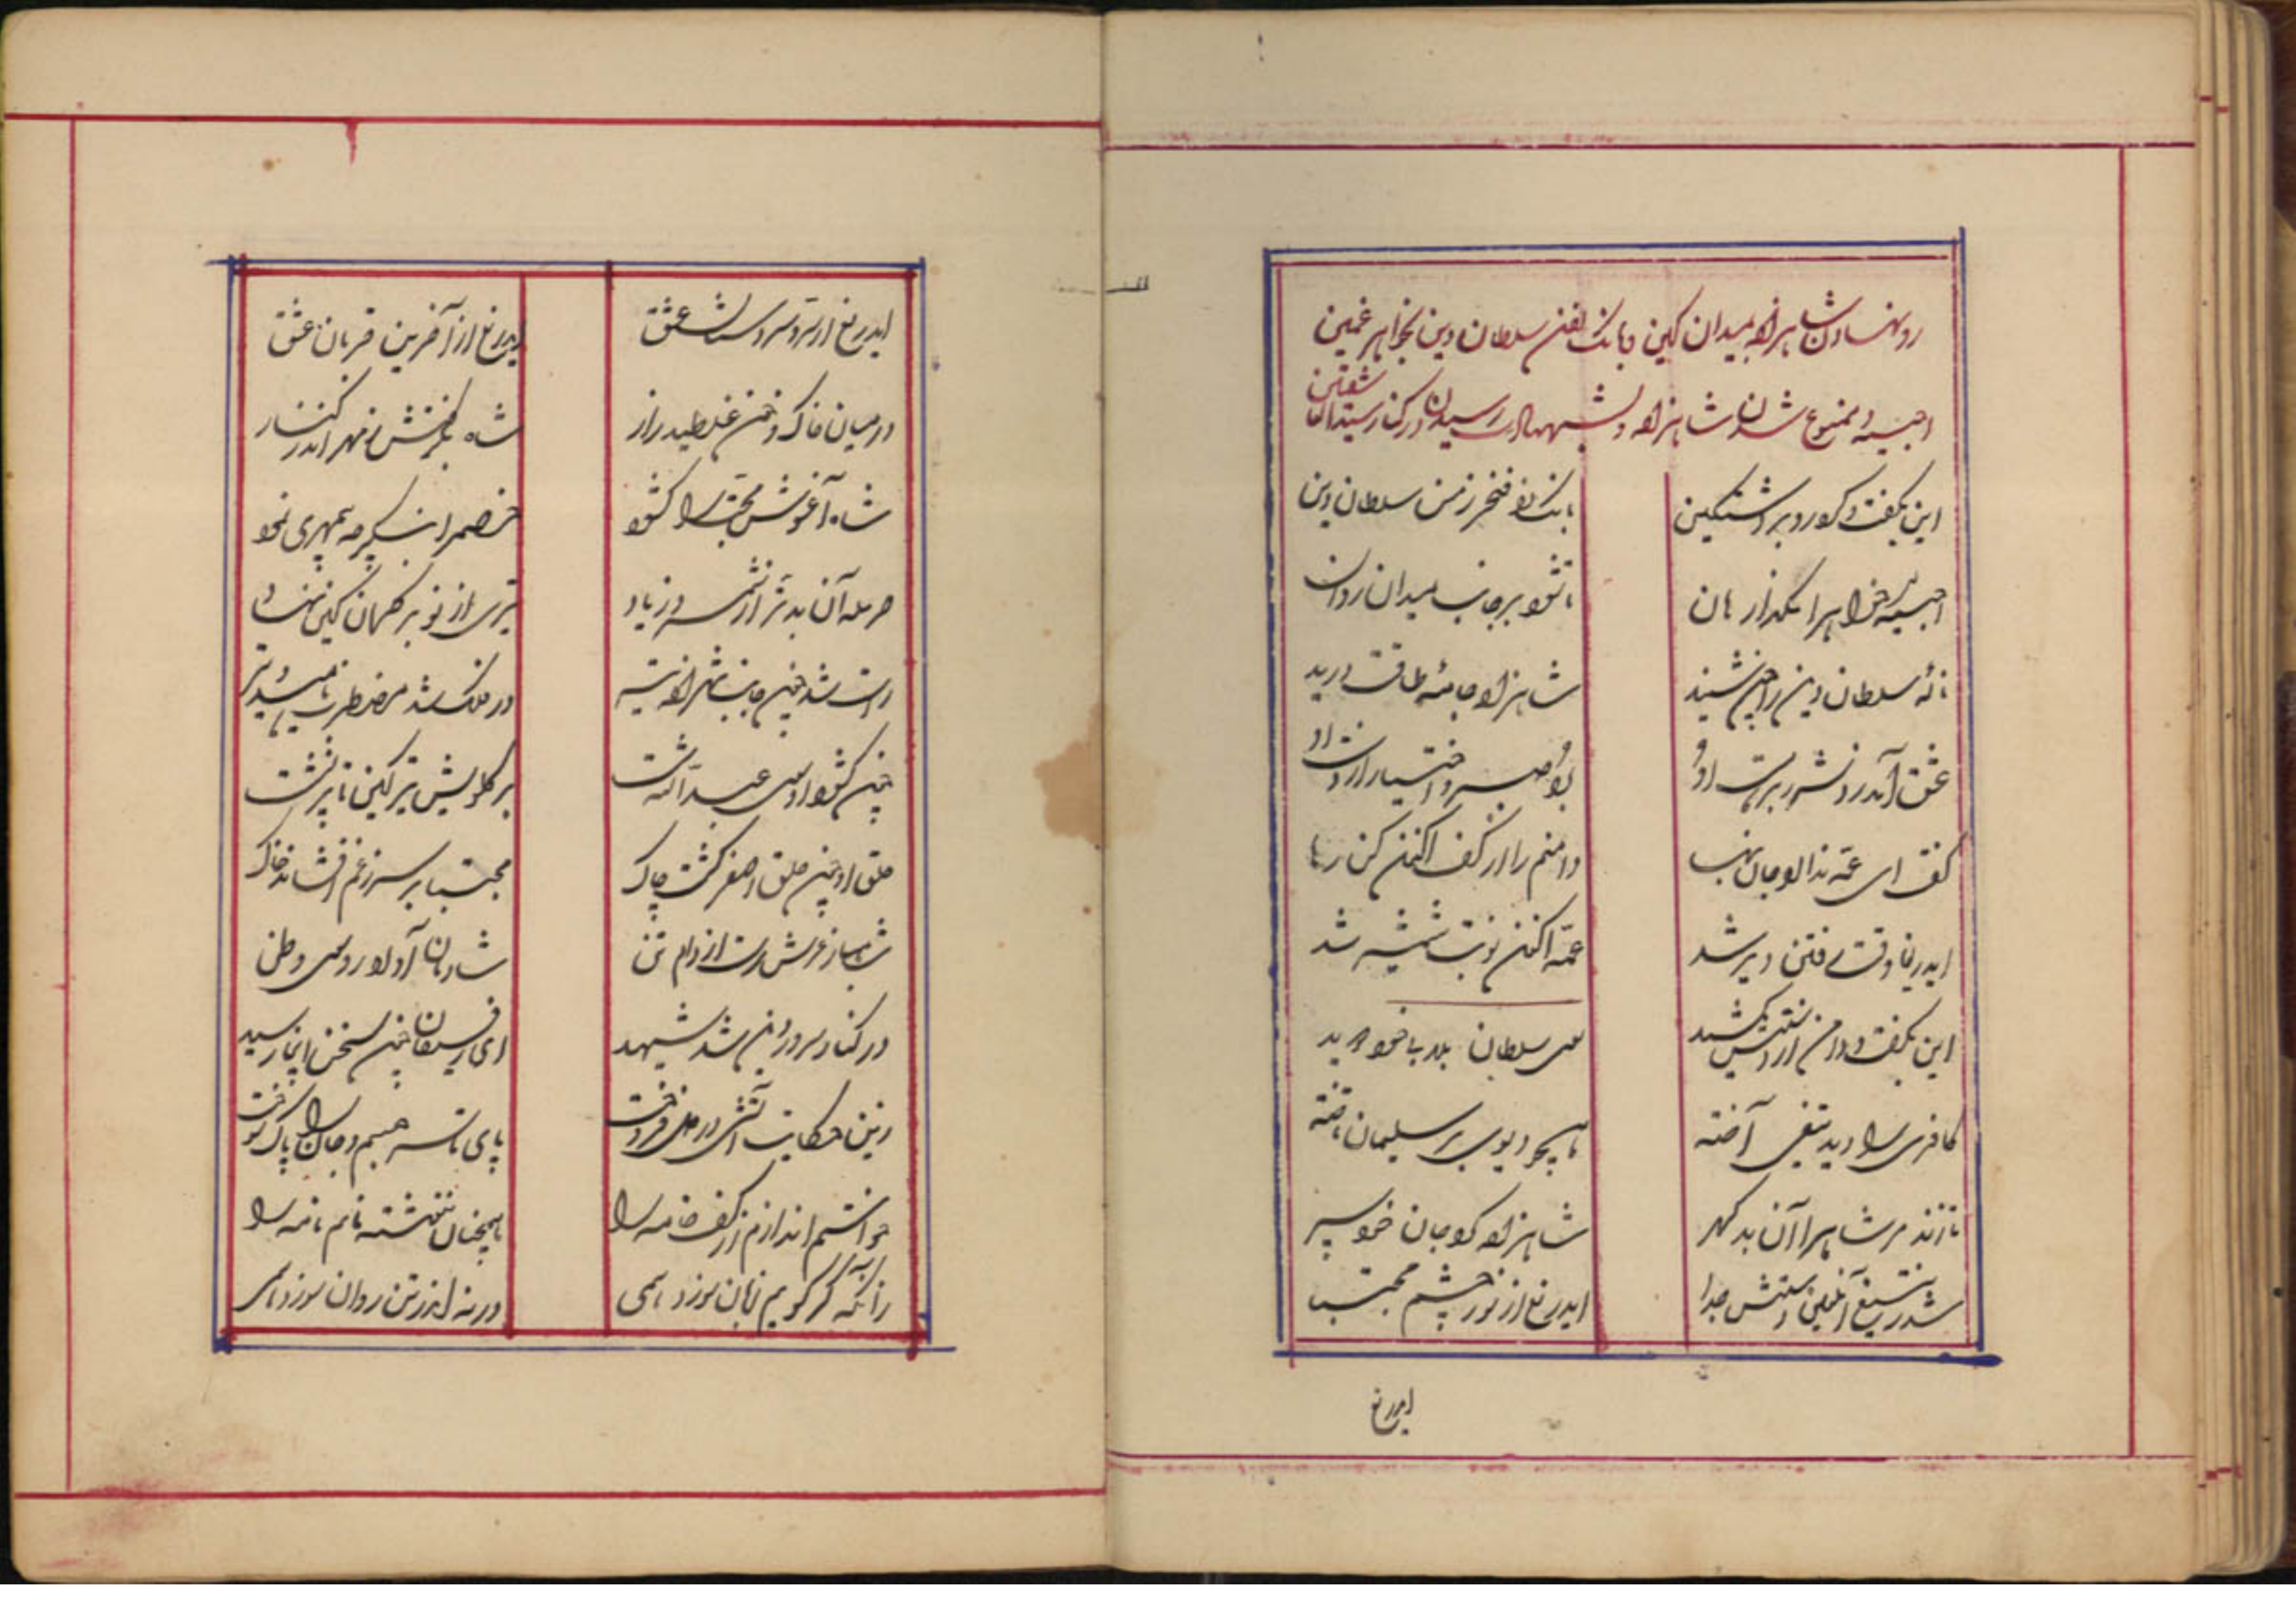 رو نهادن شاهزاده بمیدان کین و بانک زدن سلطان دین بخواهر غمین
احبسیه و ممنوع نشدن شاهزاده و شهادت رسیدن در کنار سیدالعاشقین
این بگفت و کرد رو بر دشت کین
بانک زد فخر زمن سلطان دین
احبسیه خواهرا مگذار هان
تا شود بر جانب میدان روان
نالهٔ سلطان دین را چون شنید
شاهزاده جامهٔ طاقت درید
عشق آمد زد شرر بر هست او
برد صبر و اختیار از دست او
گفت ای عمه ندا آمد جان نهب
دامنم را از کف اکنون کن رها
ایدریغا وقت رفتن دیر شد
عمه اکنون نوبت شمشیر شد
این بگفت و دامن از دستش کشید
سوی سلطان بلا با خود دوید
کافری را دید تیغی آخته
همچو دیوی بر سلیمان تاخته
تا زند مر شاه را آن بد گهر
شاهزاده کرد جان خود سپر
شد ز تیغ آن لعین دستش جدا
ایدریغ از نور چشم مجتبی
ایدریغ
ایدریغ از سرو سروستان عشق
ایدریغ از آخرین قربان عشق
در میان خاک و خون غلطید زار
شاه بگرفتش ز مهر اندر کنار
شاه آغوش محبت را گشود
خصم را بنگر چه بیمهری نمود
حرمله آن بدتر از شمر و زیاد
تیری از نو بر کمان کین نهاد
راست شد چون جانب شهزاده تیر
در فلک شد مضطرب ناهید و تیر
چون گشود او سوی عبدالله شست
بر گلویش تیر کین تا پر نشست
حلق او چون حلق اصغر گشت چاک
مجتبی بر سر ز غم افشاند خاک
شاهباز عرش رست از دام تن
شادمان آورد روی سوی وطن
در کنار سرور دین شد شهید
ای رفیقان چون سخن اینجا رسید
زین حکایت آتشی در دل فروخت
پای تا سر جسم و جان پاک سوخت
خواستم اندازم از کف خامه را
همچنان ننوشته مانم نامه را
زانکه گر گویم زبان سوزد همی
ورنه اندر تن روان سوزد همی